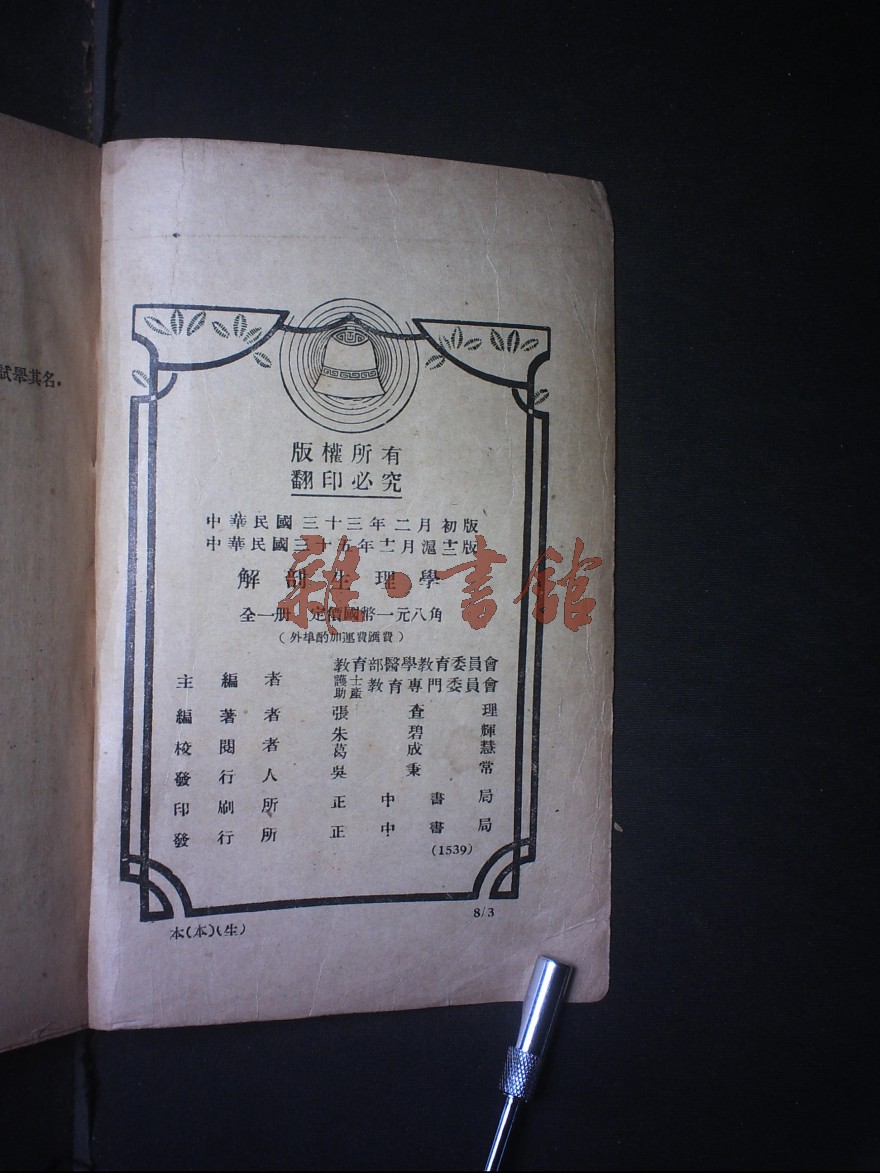 試舉其名.
版權所有
翻印必究
中華民國三十三年二月初版
中華民國三十五年十二月滬十二版
解剖生理學
全一册 定價國幣一元八角
(外埠酌加運費匯費)
主編者 教育部醫學教育委員會
護士助產教育專門委員會
編著者 張查理
朱碧輝
校閱者 葛成慧
發行人 吳秉常
印刷所 正中書局
發行所 正中書局
(1539)
8/3
本(本)(生)
雜·書館